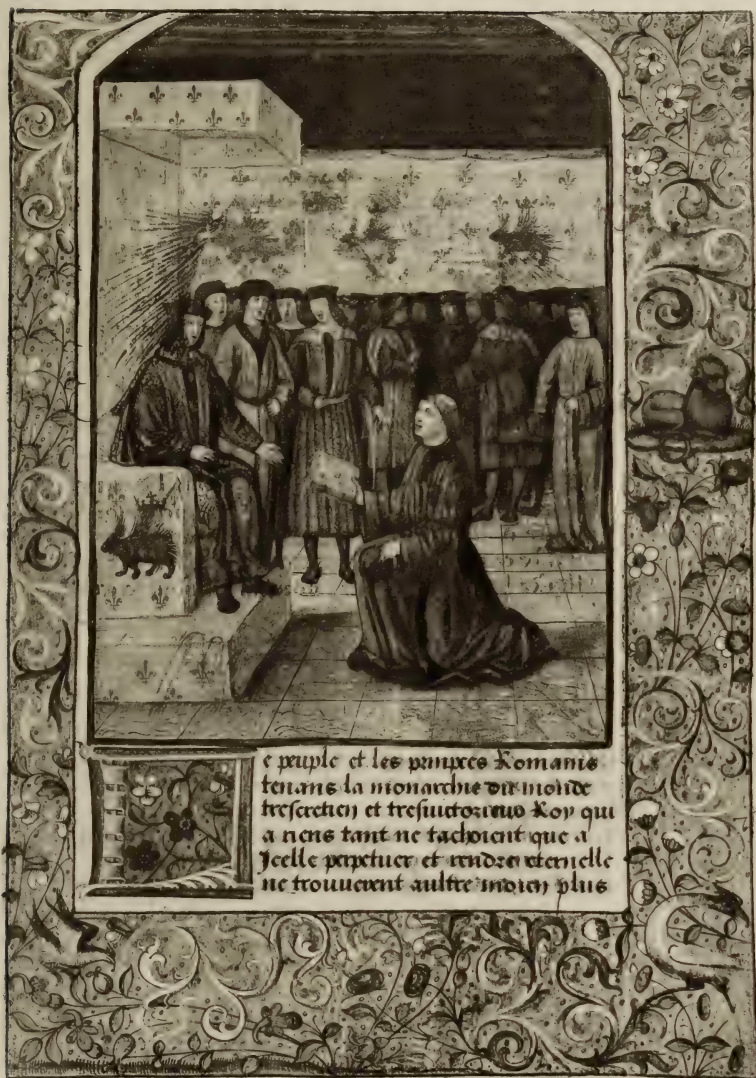 e peuple et les princes Romains
tenans la monarchie du monde
trescretien et tresuictorieuo Roy qui
a riens tant ne tachoient que a
Jcelle perpetuer et rendre eternelle
ne trouuerent aultre moien plus